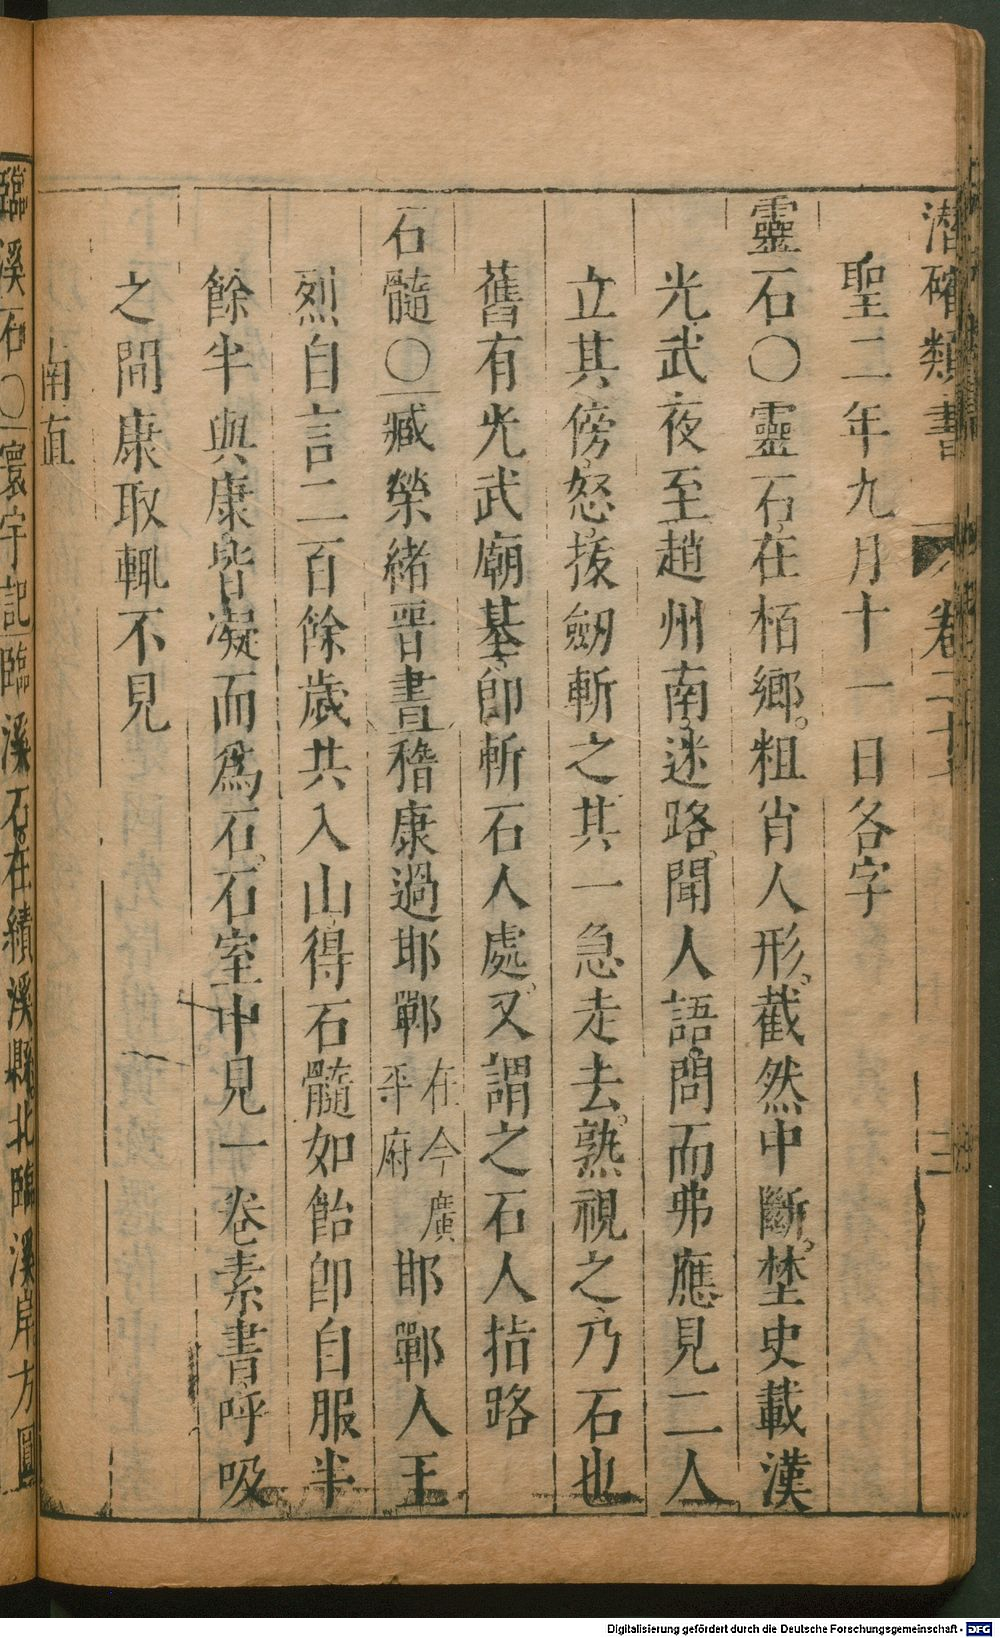 潛確類書 卷二十 三
聖二年九月十一日各字
靈石〇靈石在栢鄉粗肖人形截然中斷埜史載漢
光武夜至趙州南迷路聞人語問而弗應見二人
立其傍怒拔劒斬之其一急走去熟視之乃石也
舊有光武廟基卽斬石人處又謂之石人指路
石髓〇臧榮緒晋書嵇康過邯鄲在今廣平府邯鄲人王
烈自言二百餘歲共入山得石髓如飴卽自服半
餘半與康皆凝而爲石石室中見一卷素書呼吸
之間康取輒不見
南直
臨溪石〇寰宇記臨溪石在績溪縣北臨溪岸方圓
Digitalisierung gefördert durch die Deutsche Forschungsgemeinschaft - DFG